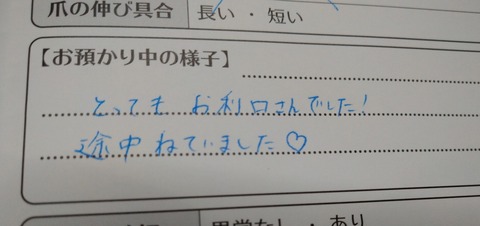 爪の伸び具合 長い ・ 短い
【お預かり中の様子】
とっても お利口さんでした!
途中 ねていました♡
・ あり